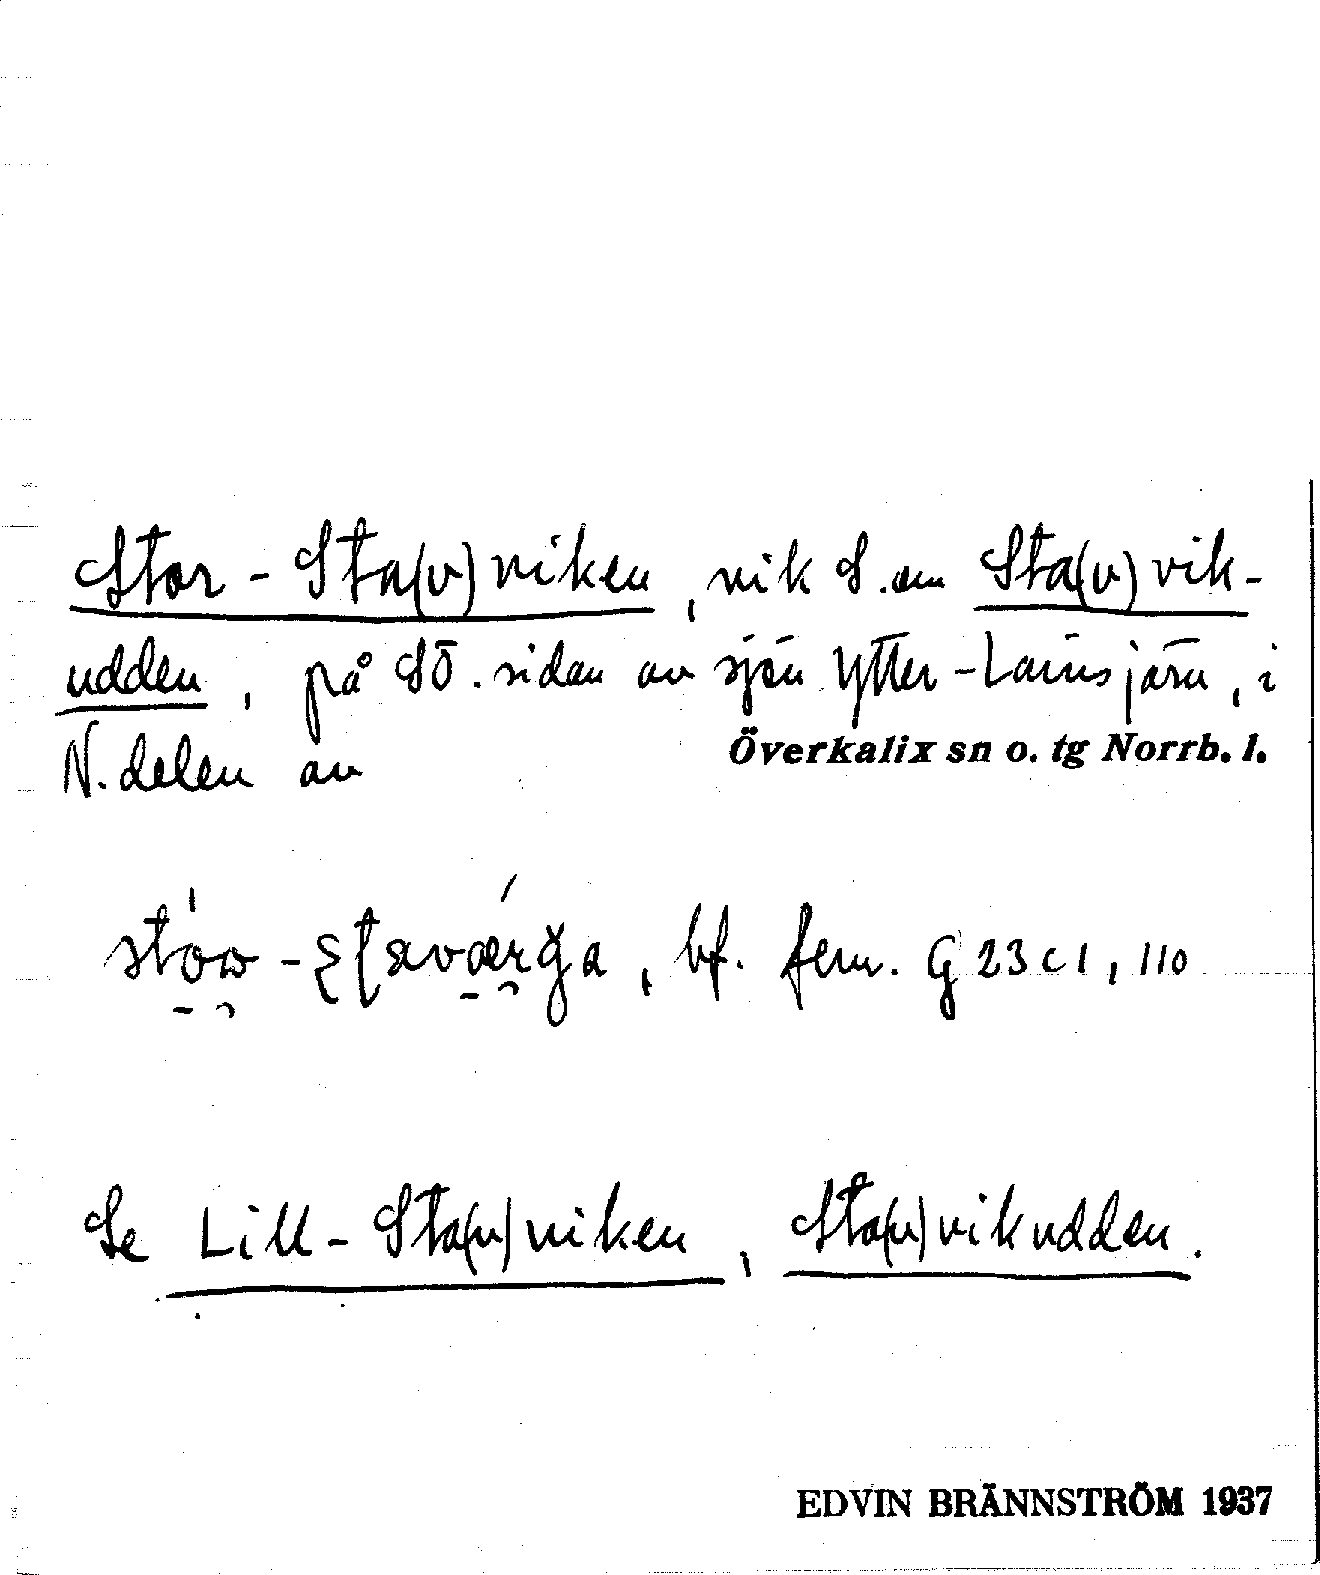 Stor-Sta(v)viken, vik S. om Sta(v)vik-
udden, på SÖ. sidan av sjön Ytter-Lainsjärv, i
N. delen av Överkalix sn o. tg Norrb. l.
bf. fem. G 23 c 1, 110
Se Lill-Sta(v)viken, Sta(v)vikudden.
EDVIN BRÄNNSTRÖM 1937